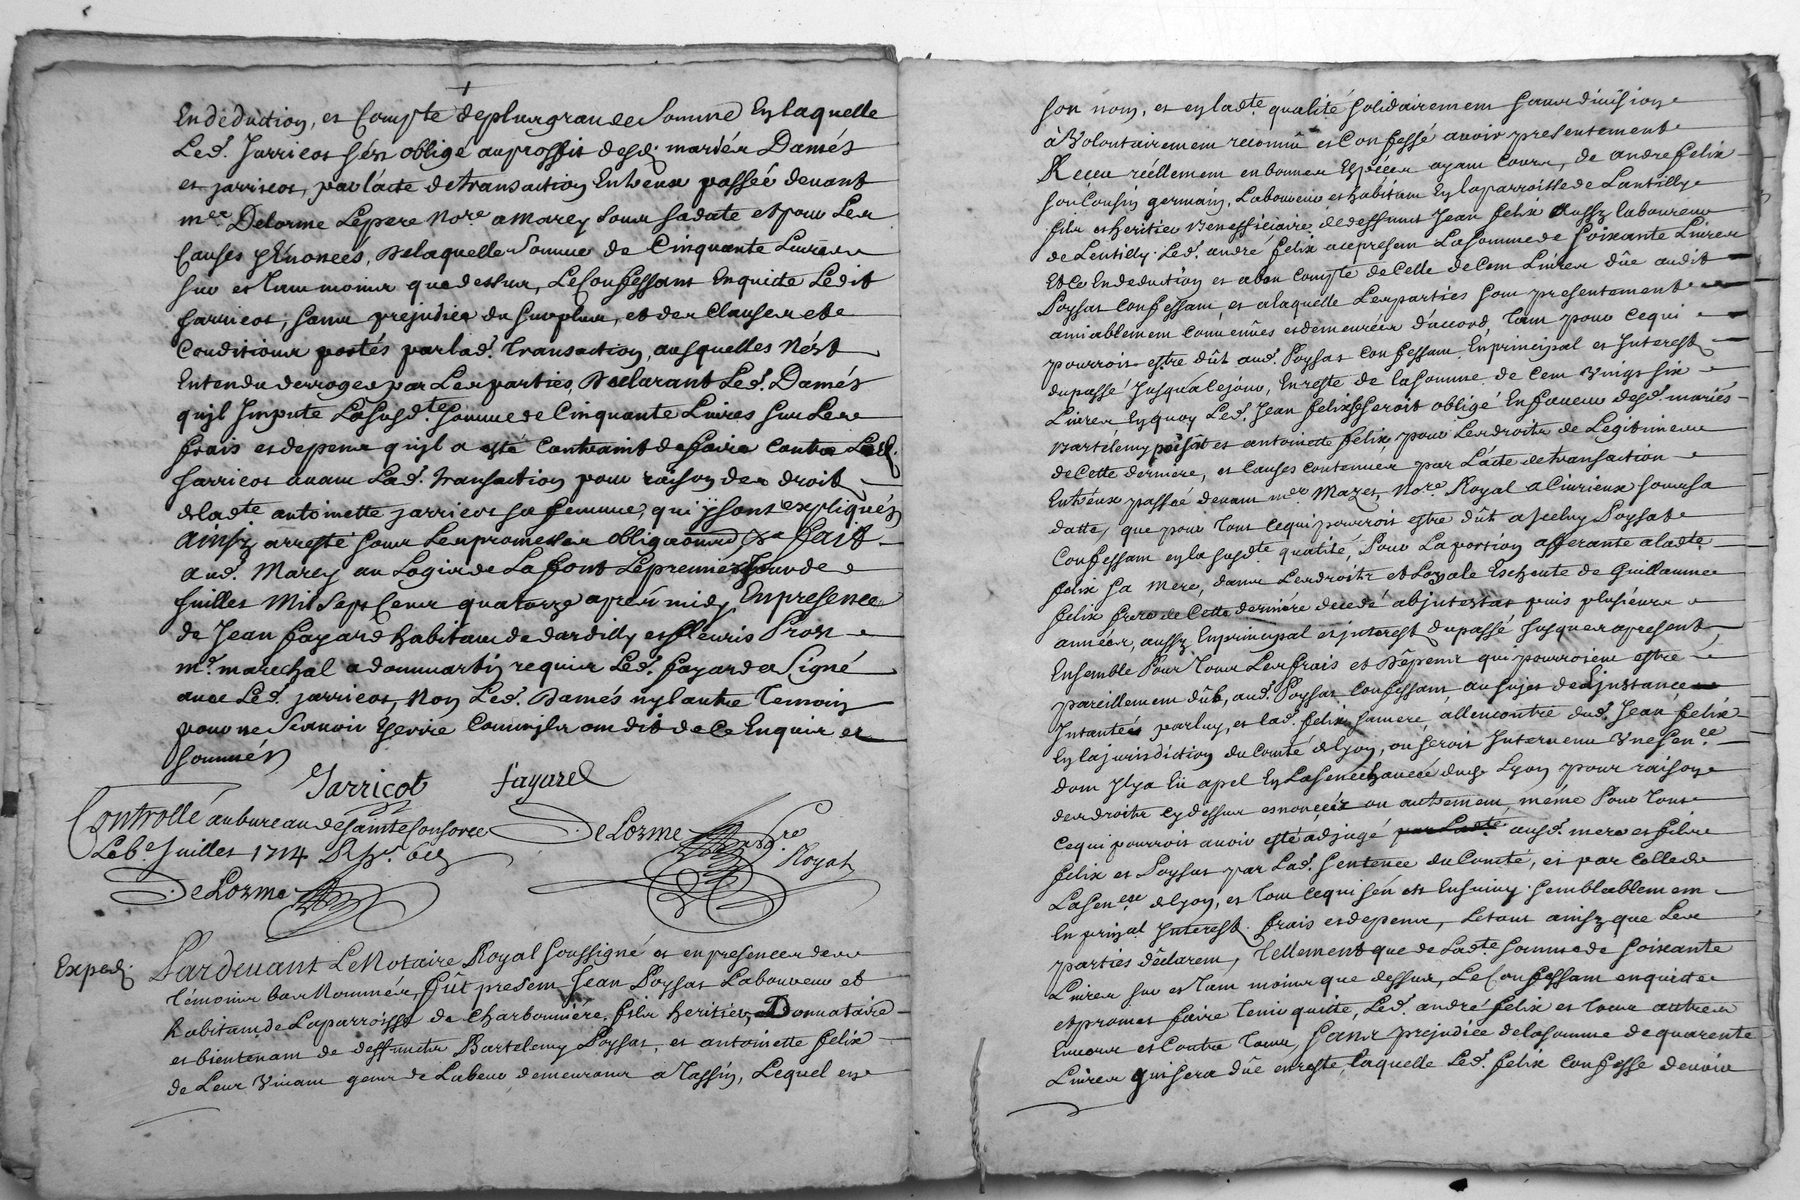 En deduction, et Compte de plus grande Somme En laquelle
Led. Jarricot s'est obligé au proffit desd. mariés Damés
et jarricot, par l'acte de transaction Entreux passée devant
me. Delorme Lepere Nore. a Marcy sous sa date et pour Les
Causes y Enoncés, De laquelle Somme de Cinquante Livres
sur et tant moins que dessus, Le Confessant En quitte Ledit
Jarricot, sans prejudice du surplus, et des Clauses et
Conditions portés par lad. Transaction, ausquelles N'est
Entendu derroger par Les parties, Declarant Led. Damés
qu'jl Jmpute La susdte. somme de Cinquante Livres sur Les
frais et depens qu'jl a esté Contraint de faire Contre Led.
Jarricot avant Lad. Transaction pour raison des droits
de ladte. antoinette jarricot sa femme, qui y sont expliqués
ainsy arresté sous Les promesses obligaons. &a fait
aud. Marcy au Logis de La font Le premier Jour de
Juillet Mil Sept Cens quatorze aprés midy En presence
de Jean fayard habitant de dardilly et fleuris Pron
md. marechal a dommartin requis Led. fayard a Signé
avec Led. jarricot, Non Led. Damés ny l'autre Temoin
pour ne Scavoir Escrire Comm'jls ont dit de Ce Enquis et
sommés
Jarricot fayard
Controllé au bureau de Sainte Consorce DeLorme Nre.
Le 6e. Juillet 1714 Royal
DeLorme
Exped. Pardevant Le Notaire Royal soussigné et en presence des
Témoins bas Nommés, fût present Jean Poysat Laboureur et
habitant de La parroisse de Charbonniére, fils heritier, Donnataire
et bientenant de deffuncts Bartelemy Poysat, et antoinette felix
de Leur Vivant gens de Labeur demeurants a Tassin, Lequel en
son nom, et en ladte. qualité solidairement sans division
à Volontairement reconnû et Confessé avoir presentement
Receu réellement en bonnes Espéces ayant Cours, de andre felix
son Cousin germain, Laboureur et habitant En la parroisse de Lantilly
fils et heritier Beneficiaire de deffunct Jean felix aussy laboureur
de Lentilly. Led. andré felix acceptant La somme de soixante Livres
Et Ce En deduction et a bon Compte de Celle de Cent Livres dûe audit
Poysat Confessant, et a laquelle Les parties sont presentement
amiablement Convenües et demeurées d'accord, Tant pour Ce qui
pourroit estre dût aud. Poysat Confessant, En principal et Interest
du passé Jusqu'a Ce jour, En reste de la somme de Cent Vingt six
Livres En quoy Led. Jean felix se seroit obligé En faveur desd. mariés
Bartelemy poisat et antoinette felix pour Les droits de Legitimes
de Cette derniere, et Causes Contenües par L'acte de transaction
Entreux passée devant me. Mazet, Nore. Royal a Civrieux sous sa
datte, que pour Tout Ce qui pourroit estre dût a jceluy Poysat
Confessant en la susdte. qualité, Pour La portion afferante a ladte.
felix sa Mere, dans Les droits et Loyale Escheute de Guillaume
felix frere de Cette derniére decedé abjntestat puis plusieurs
années, aussy En principal et jnterest du passé Jusques a present,
Ensemble Pour Tous Les frais et Dépens qui pourroient estre
pareillement dûs, aud. Poysat Confessant au sujet de L'jnstance
Intantée par luy, et lad. felix sa mere, a L'encontre dud. Jean felix
En la jurisdiction du Comté de Lyon, ou seroit Intervenu Vne Sence.
dont Jl y a Eû apel En La Senechaucée dud. Lyon pour raison
des droits cy dessus enoncéez ou autrement, même Pour Tout
Ce qui pourroit avoir esté adjugé par Ladte ausd. mere et fils
felix et Poysat par Lad. Sentence du Comté, et par Celle de
La Sence. de Lyon, et Tout Ce qui s'en est Ensuivy semblablement
En prinpal Interest frais et depens, Le tout ainsy que Les
parties déclarent, Tellement que de Ladte. somme de soixante
Livres sur et Tant moins que dessus, Le Confessant en quitte
et promet faire Tenir quitte, Led. andré felix et tous autres
Envers et Contre Tous, sans prejudice de la somme de quarente
Livres qui sera dûe en reste, laquelle Led. felix Confesse devoir